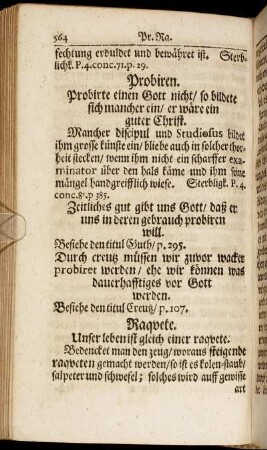 564 Pr. Ra.
fechtung erduldet und bewähret ist. Sterb-
lichk. P. 4. conc. 71. p. 29.
Probiren.
Probirte einen Gott nicht/ so bildete
sich mancher ein/ er wäre ein
guter Christ.
Mancher discipul und Studiosus bildet
ihm grosse künste ein/ bliebe auch in solcher thor-
heit stecken/ wenn ihm nicht ein scharffer exa-
minator über den hals käme und ihm seine
mängel handgreifflich wiese. Sterbligk. P. 4.
conc. 8. p. 385.
Zeitliches gut gibt uns Gott/ daß er
uns in deren gebrauch probiren
will.
Besiehe den titul Guth/ p. 295.
Durch creutz müssen wir zuvor wacker
probiret werden/ ehe wir können was
dauerhafftiges vor Gott
werden.
Besiehe den titul Creutz/ p. 107.
Raqvete.
Unser leben ist gleich einer raqvete.
Bedencket man den zeug/ woraus steigende
raqveten gemacht werden/ so ist es kolen-staub/
salpeter und schwefel; solches wird auff gewisse
art